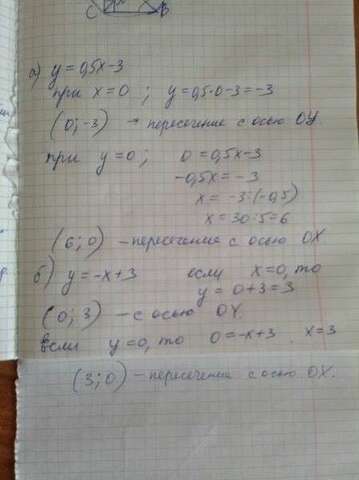 C B
а) y = 0,5x - 3
при x = 0 ; y = 0,5·0 - 3 = -3
(0; -3) - пересечение с осью OY
при y = 0; 0 = 0,5x - 3
-0,5x = -3
x = -3 : (-0,5)
x = 30 : 5 = 6
(6; 0) - пересечение с осью OX
б) y = -x + 3 если x = 0, то
y = 0 + 3 = 3
(0; 3) - с осью OY.
если y = 0, то 0 = -x + 3 . x = 3
(3; 0) - пересечение с осью OX.